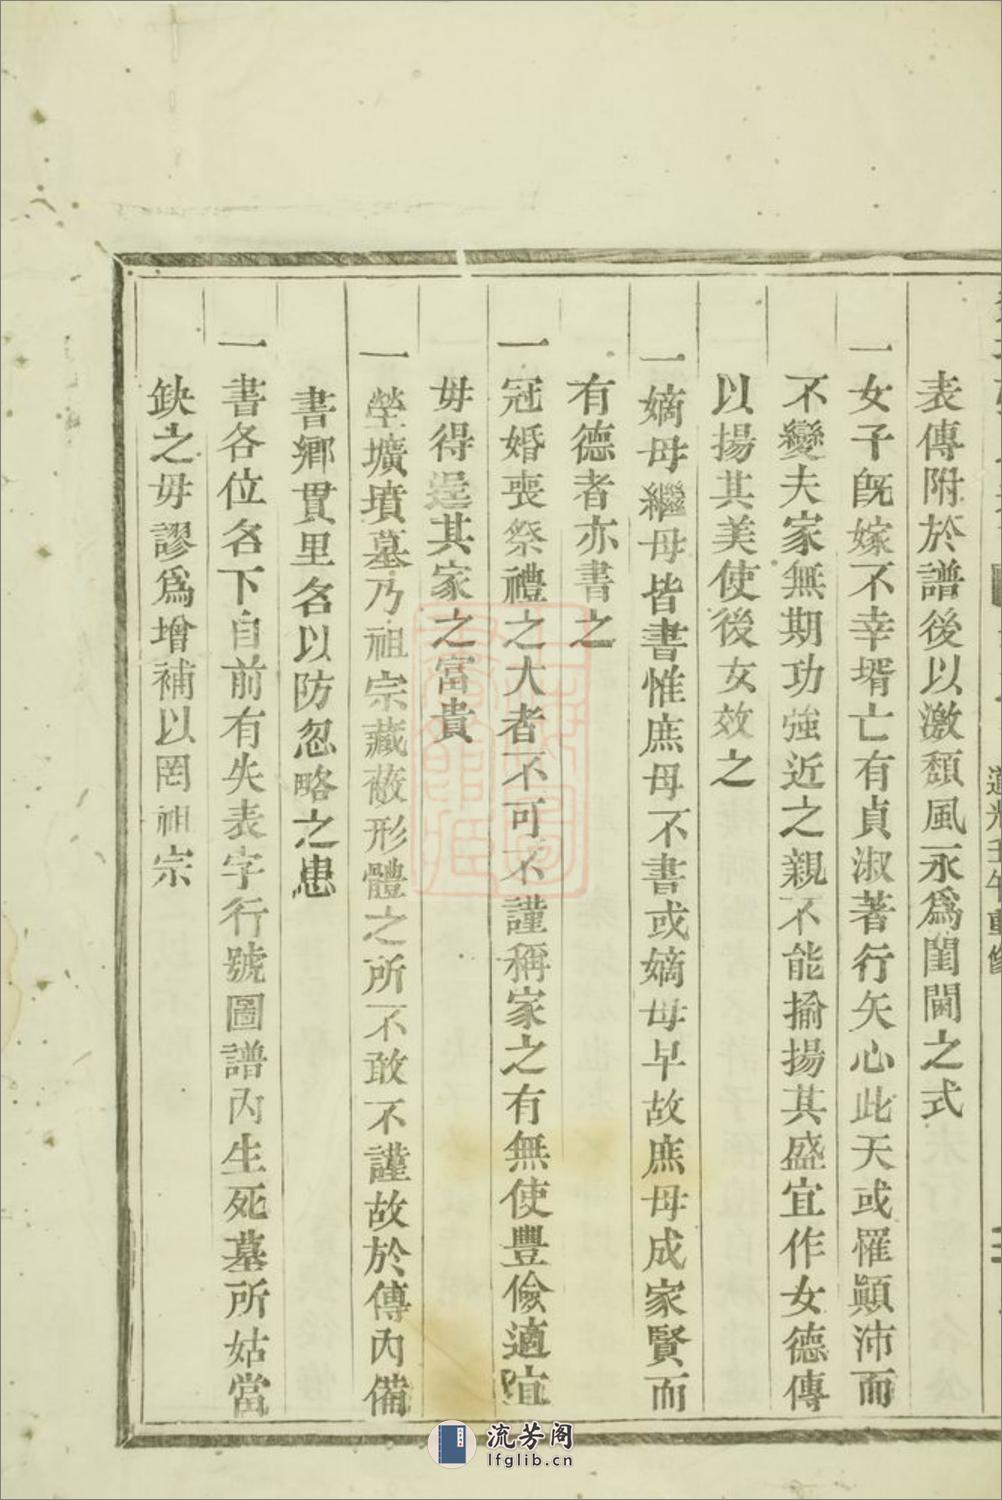 表傳附於譜後以激頽風永爲閨閫之式
一女子旣嫁不幸壻亡有貞淑著行矢心此天或罹顚沛而
不變夫家無期功強近之親不能揄揚其盛宜作女德傳
以揚其美使後女效之
一嫡母繼母皆書惟庶母不書或嫡母早故庶母成家賢而
有德者亦書之
一冠婚喪祭禮之大者不可不謹稱家之有無使豐儉適宜
毋得逞其家之富貴
一塋壙墳墓乃祖宗藏蔽形體之所不敢不謹故於傳內備
書鄉貫里名以防忽略之患
一書各位名下自前有失表字行號圖譜內生死墓所姑當
缺之毋謬爲增補以罔祖宗
道光壬午重修
流芳阁
lfglib.cn